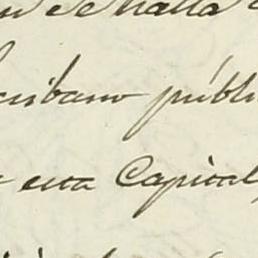 se halla
escribano públi
esta Capital,